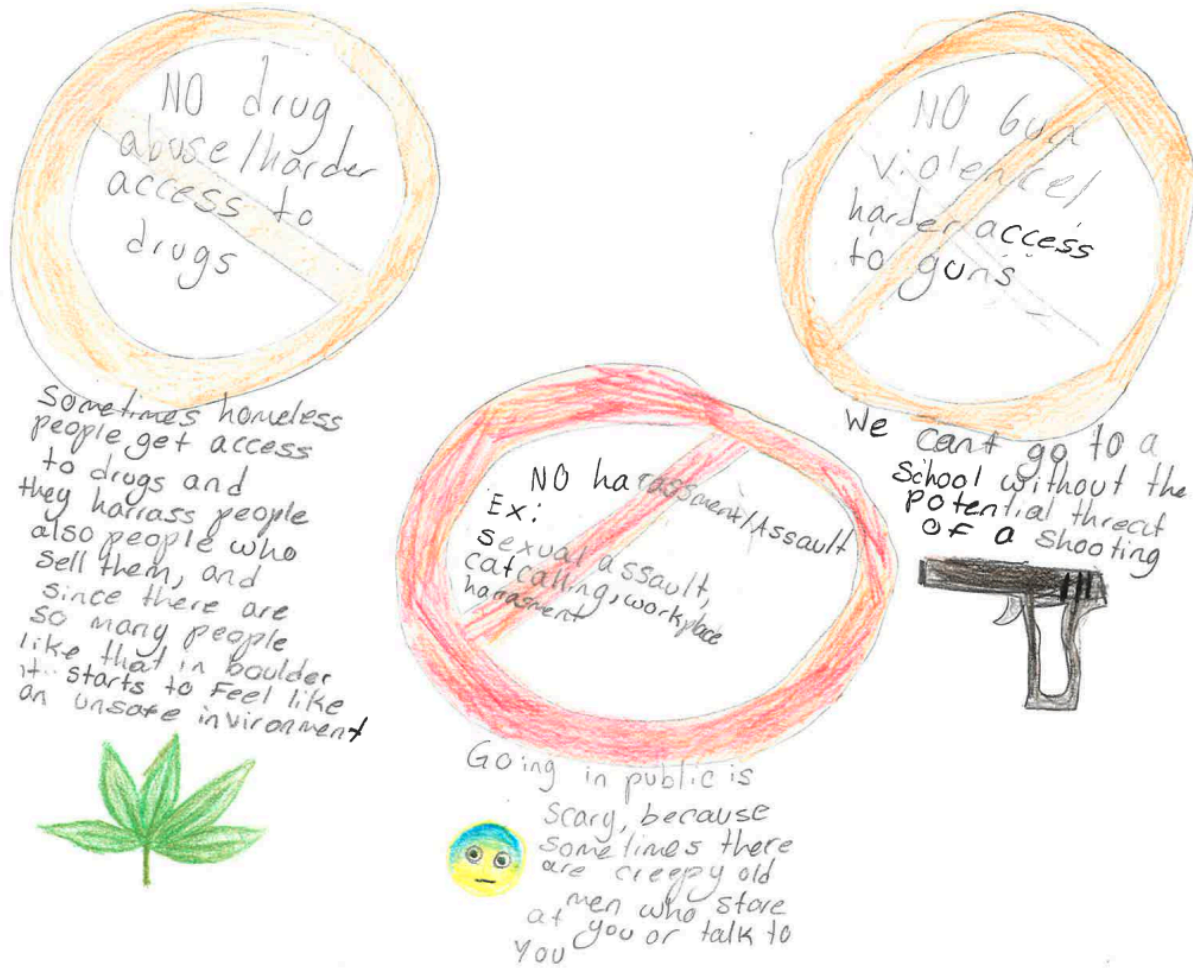 NO drug
abuse/harder
access to
drugs
Sometimes homeless
people get access
to drugs and
they harrass people
also people who
sell them, and
since there are
so many people
like that in boulder
it starts to feel like
an unsafe invironment
NO harassment/Assault
Ex:
sexual assault,
catcalling, workplace
harrasment
Going in public is
scary, because
sometimes there
are creepy old
men who stare
at you or talk to
you
NO Gun
violence/
harder access
to guns
We cant go to a
school without the
potential threat
of a shooting